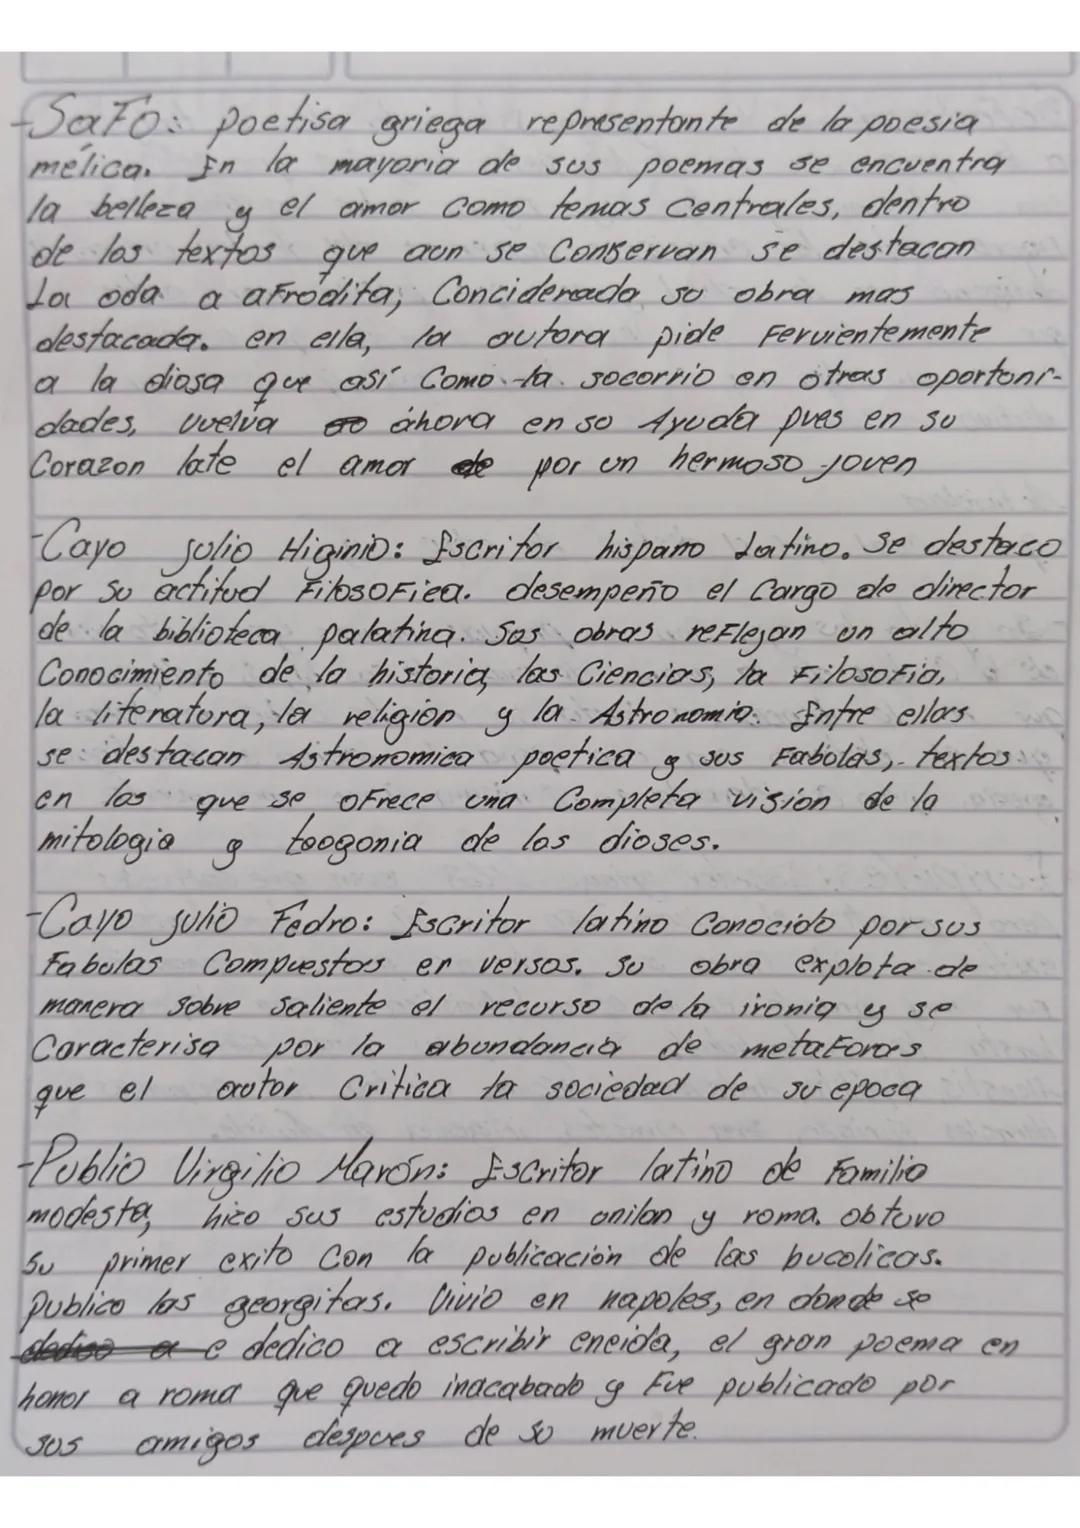 -SaFo: poetisa griega representante de la poesia
mélica. En la mayoria de sus poemas se encuentra
la belleza y el amor como temas centrales, dentro
de los textos que aun se conservan se destacan
La oda a aFrodita, Conciderada su obra mas
destacada. en ella, la autora pide Fervientemente
a la diosa que así Como la socorrio en otras oportuni-
dades, vuelva ahora en su Ayuda pues en su
Corazon late el amor por un hermoso joven
-Cayo julio Higinio: Escritor hispano Latino. Se destaco
por su actitud FilosoFica. desempeño el Cargo de director
de la biblioteca palatina. Sus obras reFlejan un alto
Conocimiento de la historia, las Ciencias, la FilosoFia,
la literatura, la religion y la Astronomia. Entre ellas
se destacan Astronomica poetica y sus Fabolas, textos
en los que se oFrece una Completa vision de la
mitologia y teogonia de los dioses.
-Cayo julio Fedro: Escritor latino Conocido por sus
Fabulas Compuestas en versos. Su obra explota de
manera sobre saliente el recurso de la ironia y se
Caracterisa por la abundancia de metaForas
que el autor Critica la sociedad de su epoca
-Publio Virgilio Marón: Escritor latino de Familia
modesta, hizo sus estudios en onilan y roma. obtuvo
su primer exito Con la publicación de las bucolicas.
publico las georgitas. Vivio en napoles, en donde se
e dedico a escribir eneida, el gran poema en
honor a roma que quedo inacabado y Fue publicado por
sus amigos despues de su muerte.